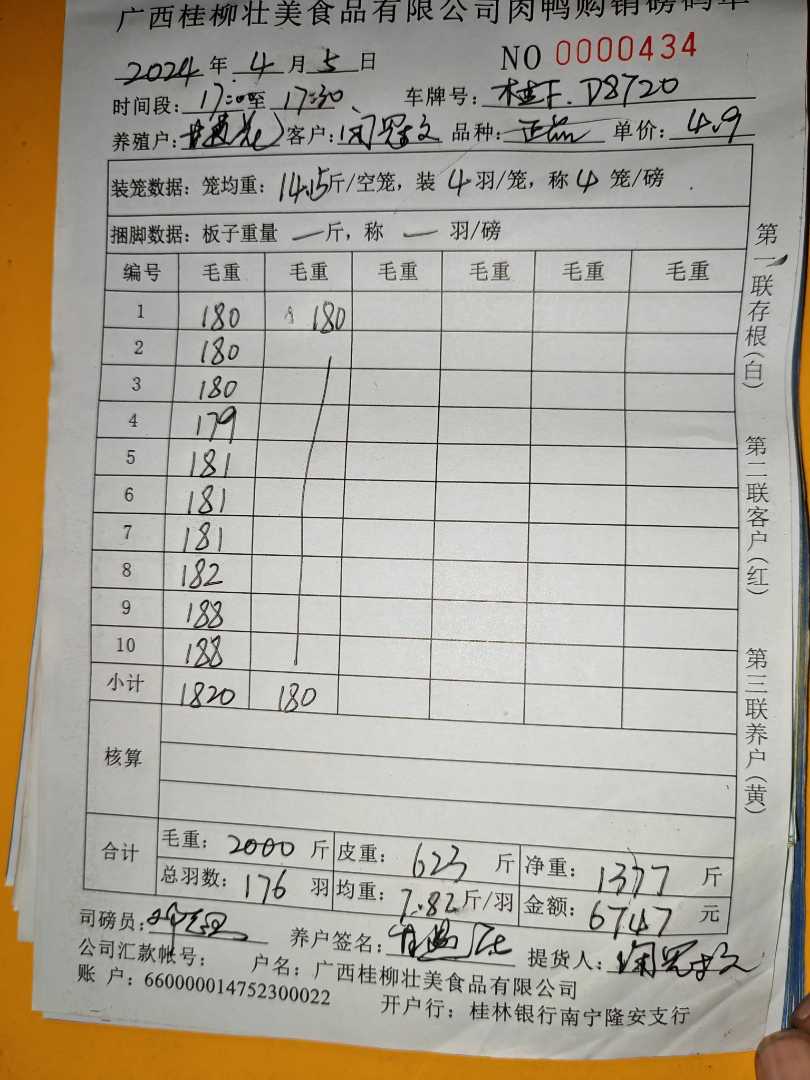 广西桂柳壮美食品有限公司肉鸭购销磅码单
2024年 4 月 5 日 NO 0000434
时间段: 17:0至 17:30 车牌号: 桂F.D8720
养殖户: 客户: 闭冠文 品种: 单价: 4.9
装笼数据: 笼均重: 14.15斤/空笼, 装 4 羽/笼, 称 4 笼/磅
捆脚数据: 板子重量 — 斤, 称 — 羽/磅
编号 毛重 毛重 毛重 毛重 毛重 毛重
1 180 180
2 180
3 180
4 179
5 181
6 181
7 181
8 182
9 188
10 188
小计 1820 180
核算
合计 毛重: 2000 斤 皮重: 623 斤 净重: 1377 斤
总羽数: 176 羽 均重: 7.82 斤/羽 金额: 6747 元
司磅员: 养户签名: 提货人: 闭冠文
公司汇款帐号: 户名: 广西桂柳壮美食品有限公司
账 户: 660000014752300022 开户行: 桂林银行南宁隆安支行
第一联存根(白) 第二联客户(红) 第三联养户(黄)